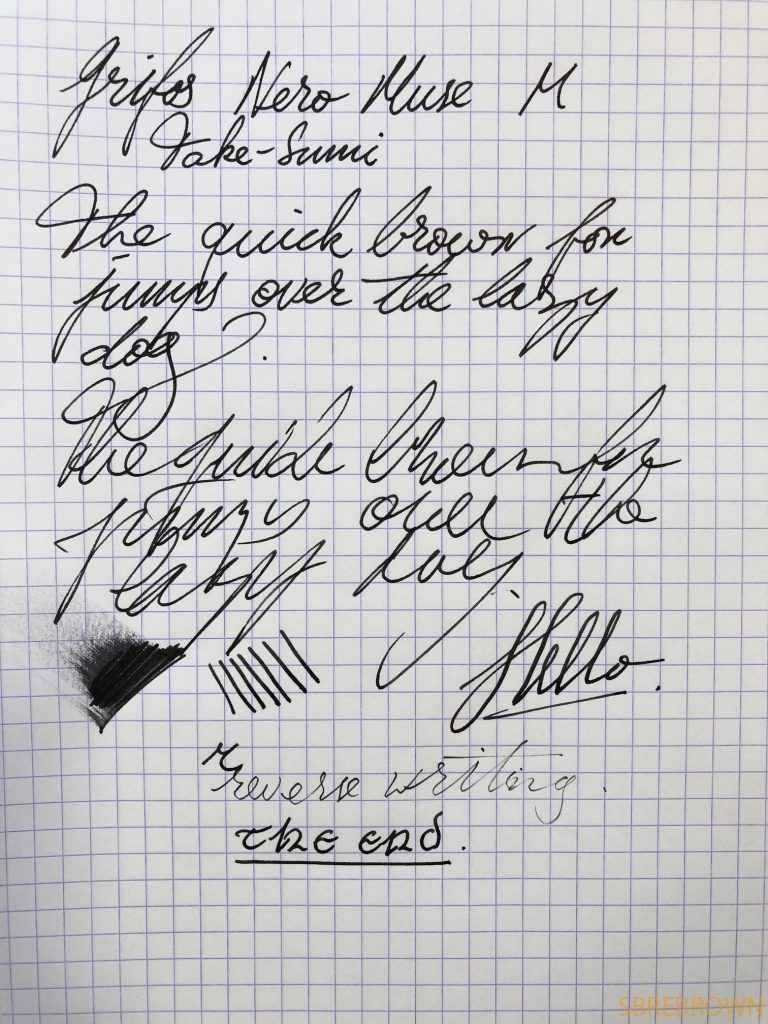 Grifos Nero Muse M
Take-Sumi
The quick brown fox
jumps over the lazy
dog.
The quick brown fox
jumps over the
lazy dog.
Hello.
reverse writing.
the end.
SBREBROWN